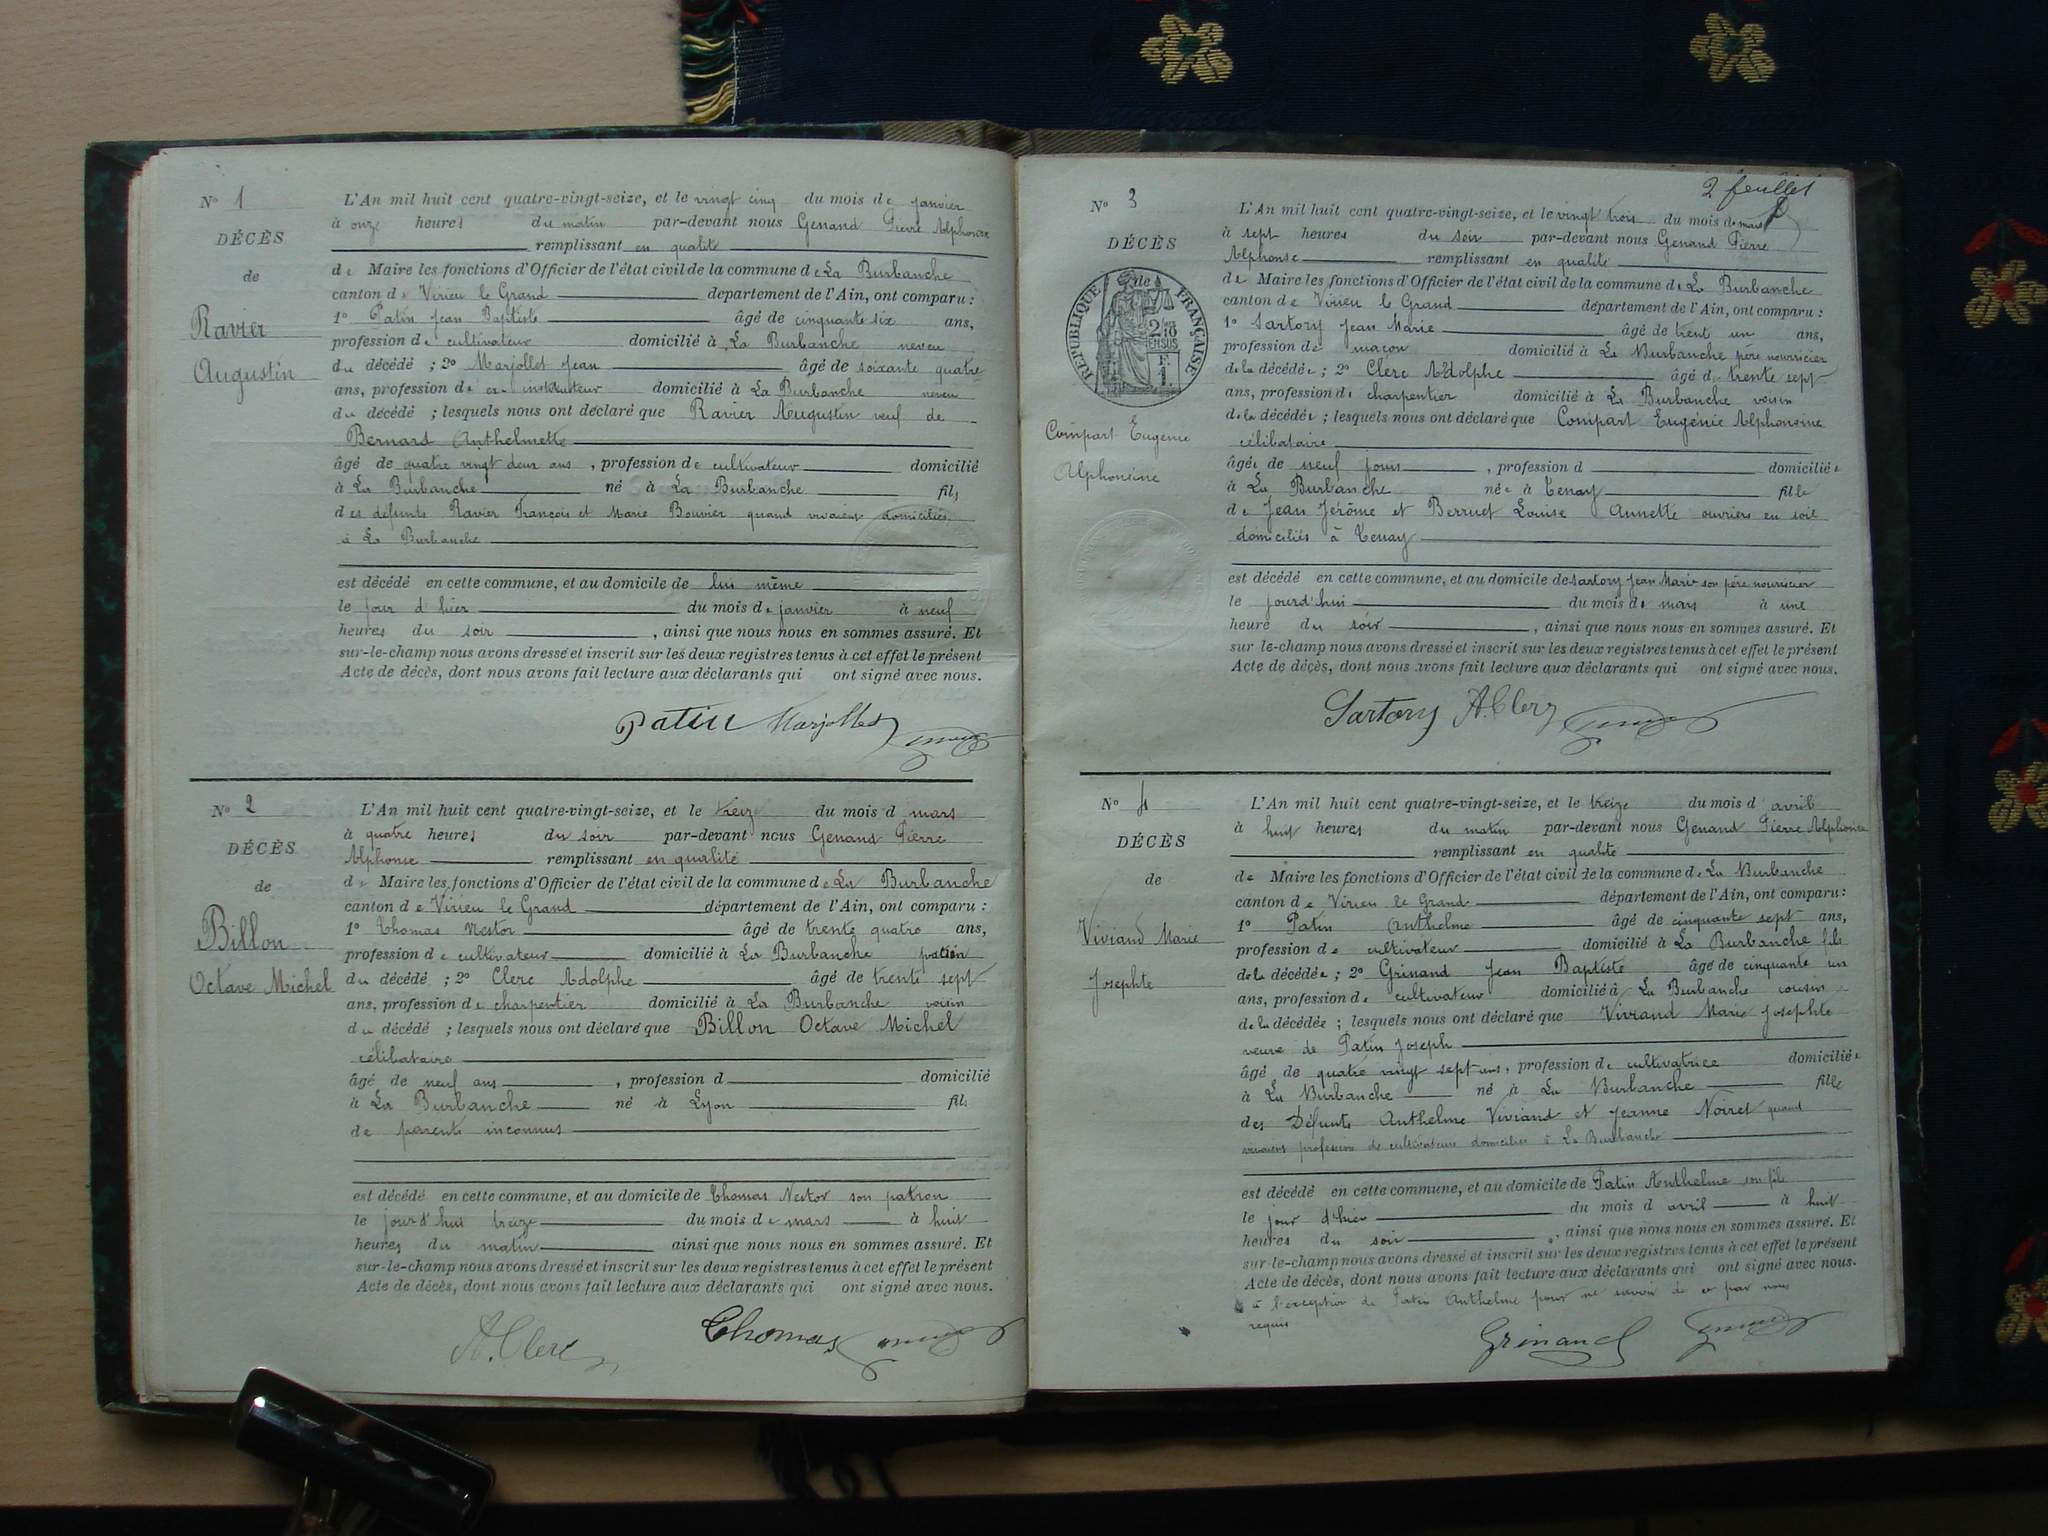 N° 1
DÉCÈS
de
Ravier
Augustin
L'An mil huit cent quatre-vingt-seize, et le vingt cinq du mois de janvier
à onze heures du matin par-devant nous Genand Pierre Alphonse
remplissant en qualité
de Maire les fonctions d'Officier de l'état civil de la commune de La Burbanche
canton de Virieu le Grand département de l'Ain, ont comparu :
1° Patin Jean Baptiste âgé de cinquante six ans,
profession de cultivateur domicilié à La Burbanche neveu
du décédé ; 2° Marjollet Jean âgé de soixante quatre
ans, profession de ex instituteur domicilié à La Burbanche neveu
du décédé ; lesquels nous ont déclaré que Ravier Augustin veuf de
Bernard Anthelmette
âgé de quatre vingt deux ans , profession de cultivateur domicilié
à La Burbanche né à La Burbanche fils
des défunts Ravier François et Marie Bouvier quand vivaient domiciliés
à La Burbanche
est décédé en cette commune, et au domicile de lui même
le jour d'hier du mois de janvier à neuf
heures du soir , ainsi que nous nous en sommes assuré. Et
sur-le-champ nous avons dressé et inscrit sur les deux registres tenus à cet effet le présent
Acte de décès, dont nous avons fait lecture aux déclarants qui ont signé avec nous.
Patin Marjollet
N° 2
DÉCÈS
de
Billon
Octave Michel
L'An mil huit cent quatre-vingt-seize, et le treize du mois d mars
à quatre heures du soir par-devant nous Genand Pierre
Alphonse remplissant en qualité
de Maire les fonctions d'Officier de l'état civil de la commune de La Burbanche
canton de Virieu le Grand département de l'Ain, ont comparu :
1° Thomas Nestor âgé de trente quatre ans,
profession de cultivateur domicilié à La Burbanche patron
du décédé ; 2° Clerc Adolphe âgé de trente sept
ans, profession de charpentier domicilié à La Burbanche voisin
du décédé ; lesquels nous ont déclaré que Billon Octave Michel
célibataire
âgé de neuf ans , profession d domicilié
à La Burbanche né à Lyon fils
de parents inconnus
est décédé en cette commune, et au domicile de Thomas Nestor son patron
le jourd'hui treize du mois de mars à huit
heures du matin ainsi que nous nous en sommes assuré. Et
sur-le-champ nous avons dressé et inscrit sur les deux registres tenus à cet effet le présent
Acte de décès, dont nous avons fait lecture aux déclarants qui ont signé avec nous.
A. Clerc Thomas
2 feuillet
N° 3
DÉCÈS
de
RÉPUBLIQUE FRANÇAISE
2/10
EN SUS
F.
1.
Compart Eugénie
Alphonsine
L'An mil huit cent quatre-vingt-seize, et le vingt trois du mois de mars
à sept heures du soir par-devant nous Genand Pierre
Alphonse remplissant en qualité
de Maire les fonctions d'Officier de l'état civil de la commune de La Burbanche
canton de Virieu le Grand département de l'Ain, ont comparu :
1° Sartory Jean Marie âgé de trent un ans,
profession de maçon domicilié à La Burbanche père nourricier
de la décédée ; 2° Clerc Adolphe âgé de trente sept
ans, profession de charpentier domicilié à La Burbanche voisin
de la décédée ; lesquels nous ont déclaré que Compart Eugénie Alphonsine
célibataire
âgée de neuf jours , profession d domiciliée
à La Burbanche née à Tenay fille
de Jean Jérôme et Berruet Louise Annette ouvriers en soie
domiciliés à Tenay
est décédé en cette commune, et au domicile de Sartory Jean Marie son père nourricier
le jourd'hui du mois de mars à une
heure du soir , ainsi que nous nous en sommes assuré. Et
sur le-champ nous avons dressé et inscrit sur les deux registres tenus à cet effet le présent
Acte de décès, dont nous avons fait lecture aux déclarants qui ont signé avec nous.
Sartory A. Clerc
N° 4
DÉCÈS
de
Viviand Marie
Josephte
L'An mil huit cent quatre-vingt-seize, et le treize du mois d avril
à huit heures du matin par-devant nous Genand Pierre Alphonse
remplissant en qualité
de Maire les fonctions d'Officier de l'état civil de la commune de La Burbanche
canton de Virieu le Grand département de l'Ain, ont comparu :
1° Patin Anthelme âgé de cinquante sept ans,
profession de cultivateur domicilié à La Burbanche fils
de la décédée ; 2° Grinand Jean Baptiste âgé de cinquante un
ans, profession de cultivateur domicilié à La Burbanche cousin
de la décédée ; lesquels nous ont déclaré que Viviand Marie Josephte
veuve de Patin Joseph
âgé de quatre vingt sept ans, profession de cultivatrice domiciliée
à La Burbanche né à La Burbanche fille
des Défunts Anthelme Viviand et Jeanne Noiret quand
vivaient profession de cultivateurs domiciliés à La Burbanche
est décédé en cette commune, et au domicile de Patin Anthelme son fils
le jour d'hier du mois d avril à huit
heures du soir , ainsi que nous nous en sommes assuré. Et
sur-le-champ nous avons dressé et inscrit sur les deux registres tenus à cet effet le présent
Acte de décès, dont nous avons fait lecture aux déclarants qui ont signé avec nous.
à l'exception de Patin Anthelme pour ne savoir de ce par nous
requis
Grinand